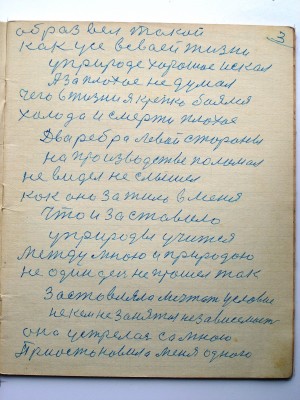 3
образ вел такой
как усе всваей жизни
у природе хорошое искал
Я за плохое не думал
чего в жизни я крепко баялся
холода и смерти плохое
Два ребра левай стораны
на производстве поломал
не видел не слышел
как оно зажило в меня
Что и заставило
у природы учится
между мною и природою
не один день не прошел так
Заставляла мечтат условие
не кем не занятоя независемост
она устрелас са мною.
Приостоновила меня одного